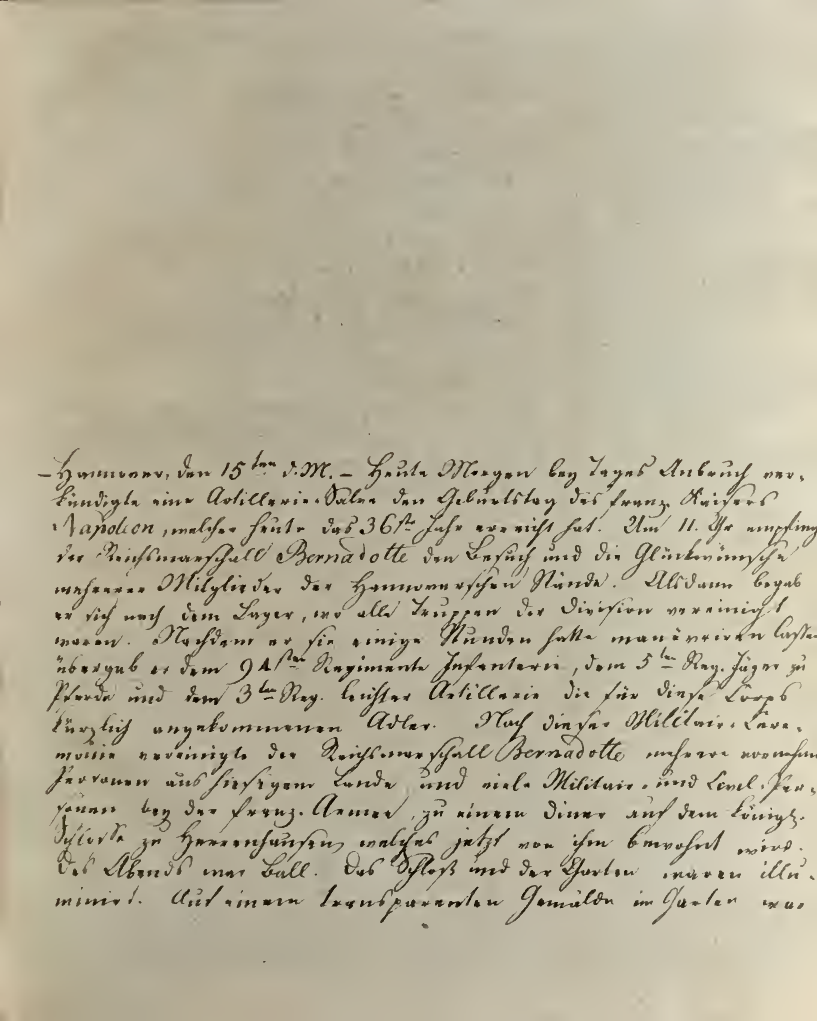 – Hannover, den 15ten d. M. – Heute Morgen bey Tages Anbruch ver-
kündigte eine Artillerie-Salve den Geburtstag des franz. Kaisers
Napoleon, welcher heute das 36ste Jahr erreicht hat. Um 11. Uhr empfing
der Reichsmarschall Bernadotte den Besuch und die Glückwünsche
mehrerer Mitglieder der Hannoverschen Stände. Alsdann begab
er sich nach dem Lager, wo alle Truppen der Division vereinigt
waren. Nachdem er sie einige Stunden hatte manövriren lassen
übergab er dem 94sten Regimente Infanterie, dem 5ten Reg. Jäger zu
Pferde und dem 3ten Reg. leichter Artillerie die für diese Corps
kürzlich angekommenen Adler. Nach dieser Militair-Cere-
monie vereinigte der Reichsmarschall Bernadotte mehrere vornehme
Personen aus hiesigem Lande und viele Militair- und Civil-Per-
sonen bey der franz. Armee, zu einem Diner auf dem Königl.
Schlosse zu Herrenhausen, welches jetzt von ihm bewohnt wird.
Des Abends war Ball. Das Schloß und der Garten waren illu-
minirt. Auf einem transparenten Gemälde im Garten war